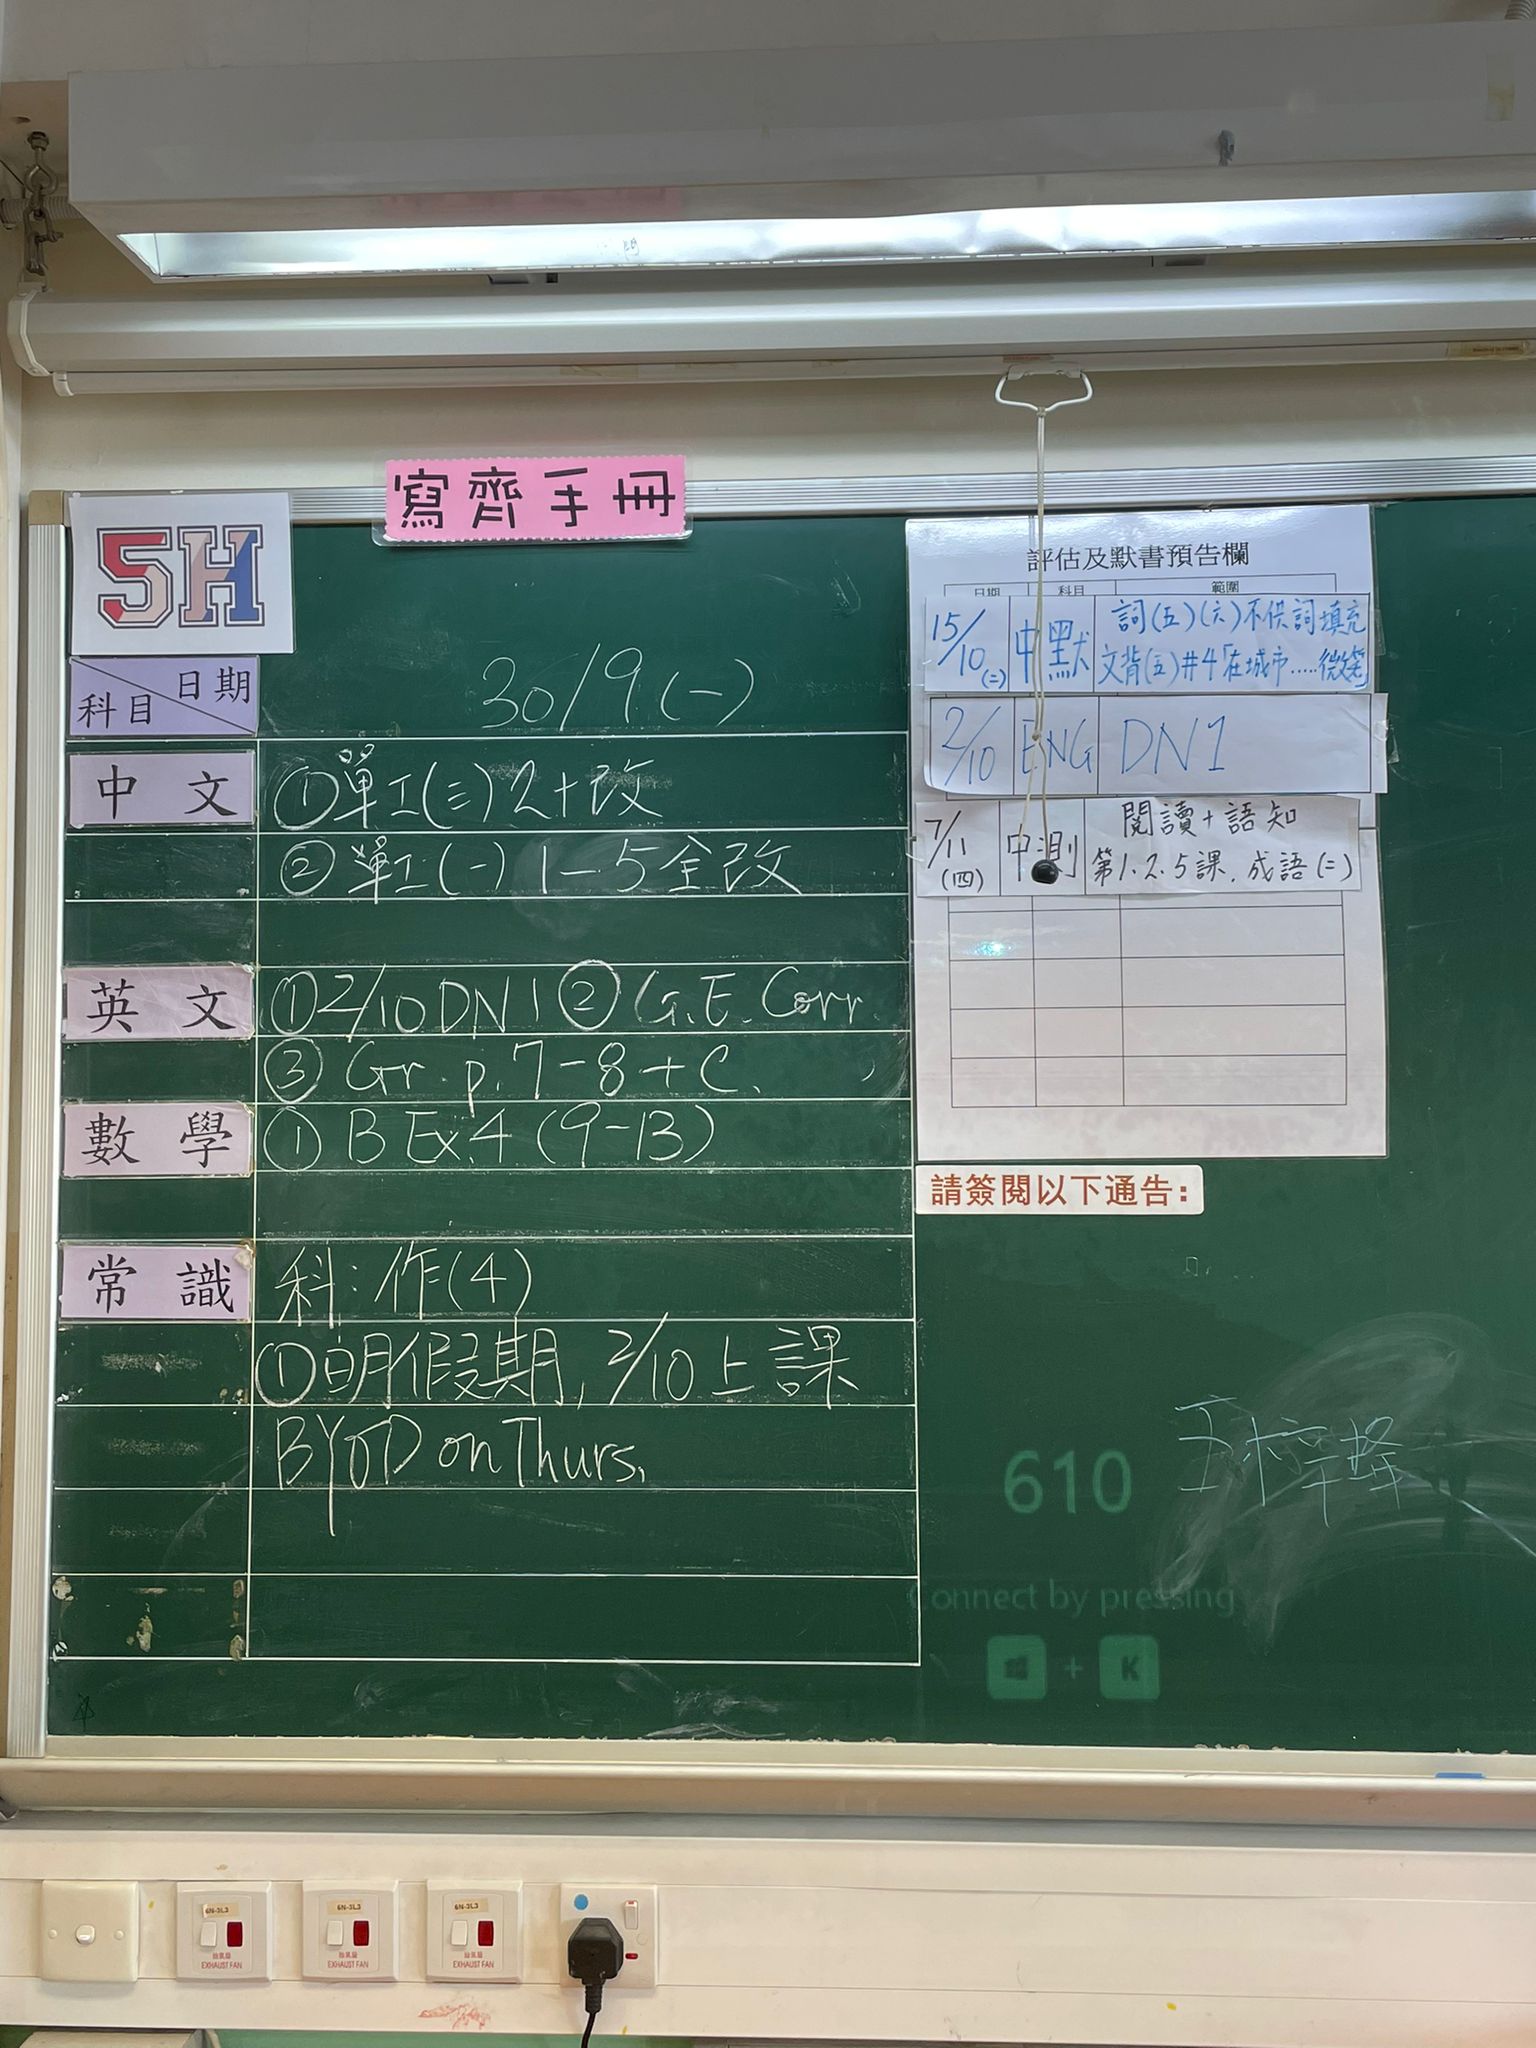 寫齊手冊
5H
日期
科目
30/9(一)
中文
①單工(三)2+改
②單工(一)1-5全改
英文
①2/10 DN1 ② G.E. Corr.
③ Gr. p.7-8+C.
數學
① B Ex.4 (9-13)
常識
科:作(4)
①明假期,2/10上課
BYOD on Thurs.
評估及默書預告欄
日期 科目 範圍
15/10(二) 中默 詞(五)(六)不供詞填充
文背(五)#4「在城市.....微笑」
2/10 ENG DN1
7/11(四) 中測 閱讀+語知
第1.2.5課.成語(二)
請簽閱以下通告:
610
Connect by pressing
+ K
6N-3L3
抽氣扇
EXHAUST FAN
6N-3L3
抽氣扇
EXHAUST FAN
6N-3L3
抽氣扇
EXHAUST FAN